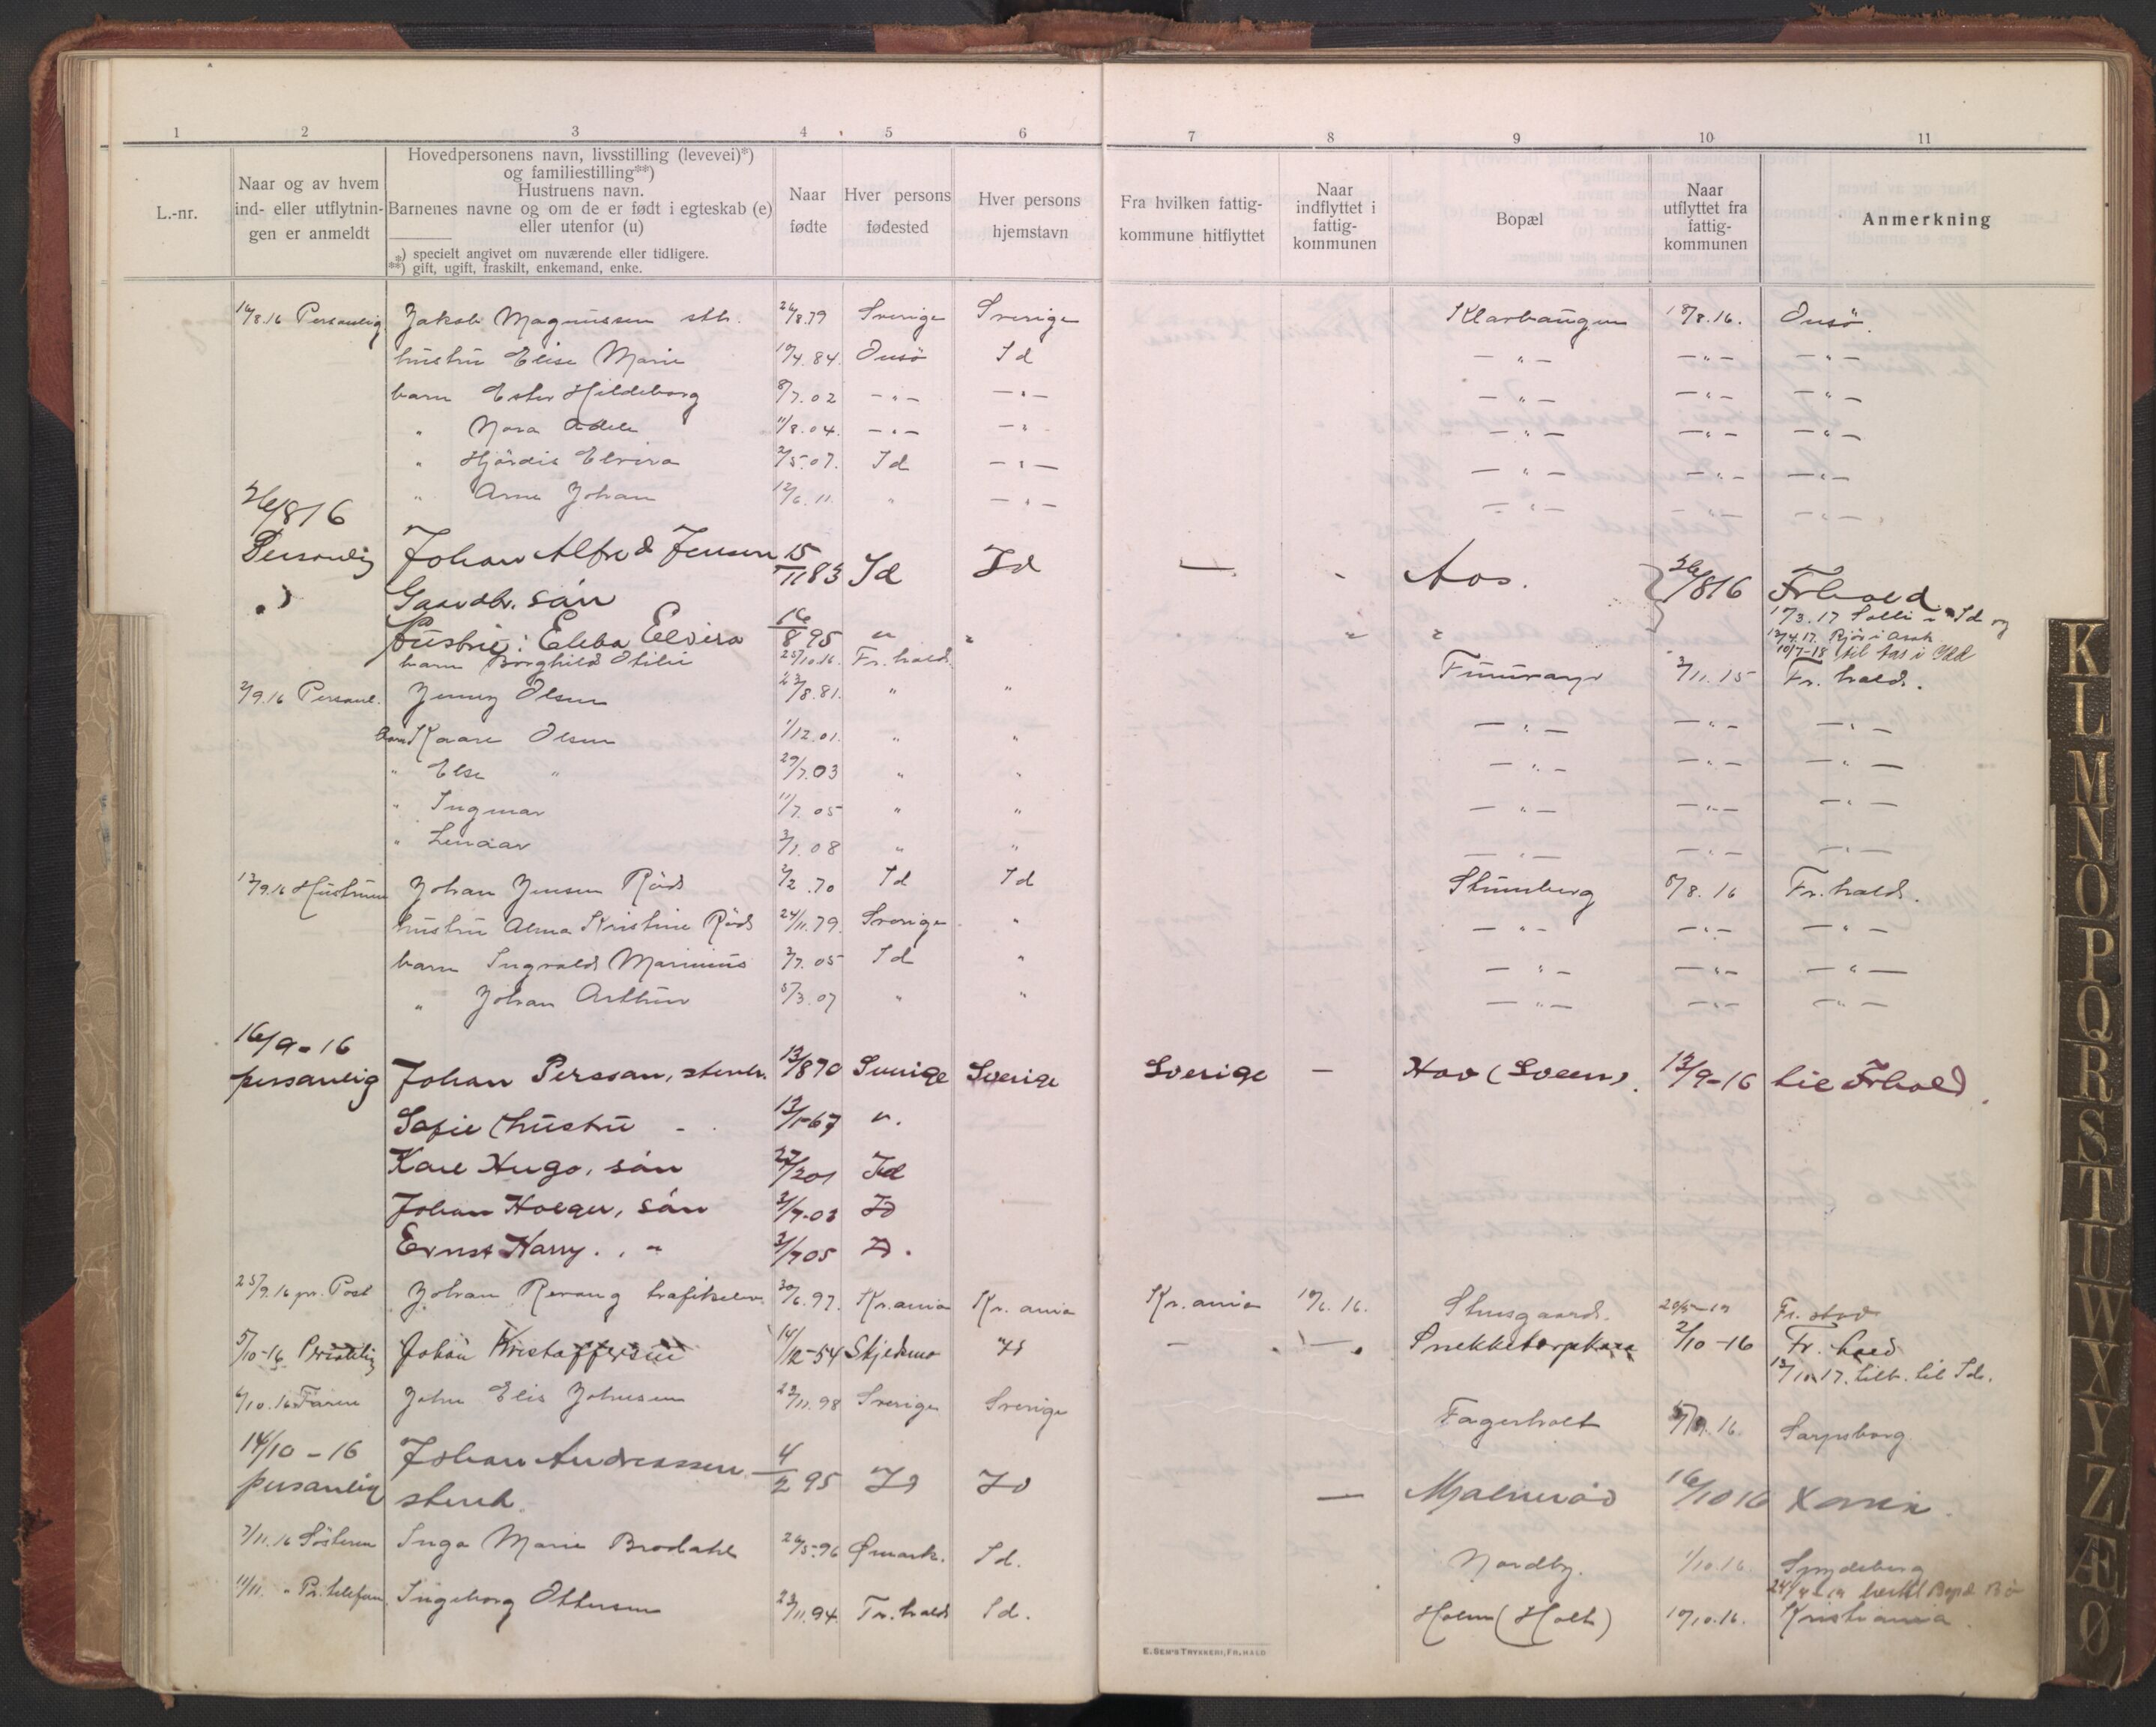 1 2 3 4 5 6 7 8 9 10 11
L.-nr.
Naar og av hvem ind- eller utflytnin-gen er anmeldt
Hovedpersonens navn, livsstilling (levevei)*)
og familiestilling**)
Hustruens navn.
Barnenes navne og om de er født i egteskab (e)
eller utenfor (u)
*) specielt angivet om nuværende eller tidligere.
**) gift, ugift, fraskilt, enkemand, enke.
Naar fødte
Hver persons fødested
Hver persons hjemstavn
Fra hvilken fattig-kommune hitflyttet
Naar indflyttet i fattig-kommunen
Bopæl
Naar utflyttet fra fattig-kommunen
Anmerkning
16/8.16 Personlig Jakob Magnussen sth. 26/8.79 Sverige Sverige Klarhaugen 18/8.16. Onsö.
hustru Elise Marie 19/4.84. Onsö Id — " — — " — — " —
barn Ester Hildeborg 8/7.02 — " — — " — — " — — " — — " —
" Nora Adele 11/8.04. — " — — " — " — — " — — " —
" Hjördis Elvira 2/5.07. Id — " — — " — — " — — " —
" Arne Johan 12/6.11. " — " — — " — — " — — " —
26/816
Personlig Johan Alfred Jensen 15/11 83 Id Id — - Aos. 26/816 Frhald
" Gaardbr. sön 17/3.17 Solli i Id og
hustru: Eleba Elvira 16/8 95 " " " " 12/4.17. Rjör i Asak
barn Borghild Otilie 25/10.16. Fr.hald. 10/7-18 til Aas i Idd
2/9.16 Personl. Jenny Olsen 23/8.81. " " Fuurange 3/11.15 Fr. hald.
Barn Kaare Olsen 1/12.01. " " — " — — " — — " —
" Else " 29/7.03 " " — " — — " — — " —
" Ingmar 11/7.05 " " — " — — " — — " —
" Lennar 3/1.08 " " — " — — " — — " —
13/9.16 Hustruen Johan Jensen Röd 2/2.70 Id Id Stumberg 8/8.16 Fr.hald.
hustru Alma Kristine Röd 24/11.79. Sverige " — " — — " — — " —
barn Ingvald Marinius 3/7.05 Id " — " — — " — — " —
" Johan Arthur 5/3.07 " " — " — — " — — " —
16/9-16
personlig Johan Persson, stenh. 13/870 Sverige Sverige Sverige — Hov (Sveen). 13/9-16 til Frhald.
Sofie (hustru - 13/1-67 ".
Karl Hugo, sön 27/201 Id
Johan Holger, sön 3/7-03 Id
Ernst Harry. , " 3/705 Id.
25/9.16 pr. Post Johan Revaug trafikelev. 30/6.97. Kr.ania Kr. ania Kr.ania 19/6.16. Stensgaard. 20/5-19 Fr. stad
5/10-16 Personlig Johan Kristoffersen 14/12-54 Skjedsmo Id — — Snekketorpkasa 2/10-16 Fr. hald
13/10.17. tilb. til Id.
6/10.16 Faren John Elis Johnsen 22/11.98 Sverige Sverige Fagerholt 5/9.16. Sarpsborg
14/10-16
personlig Johan Andreassen 4/2 95 Id Id — Malmeröd 16/1016 Kania.
stenh.
7/11.16 Söstern Inga Marie Brodahl 26/5-96 Ømark. Id. Nordby. 1/10.16. Spydeberg
11/11. " Pr. telefon. Ingeborg Ottersen 23/11.94. Fr.hald Id. Holm (Holt) 19/10.16. Kristiania.
E. SEM'S TRYKKERI, FR.HALD
K
L
M
N
O
P
Q
R
S
T
U
W
X
Y
Z
Æ
Ø